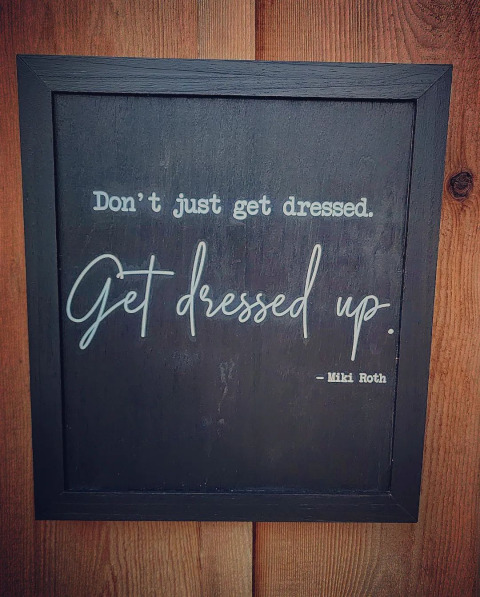 Don't just get dressed.
Get dressed up.
– Miki Roth